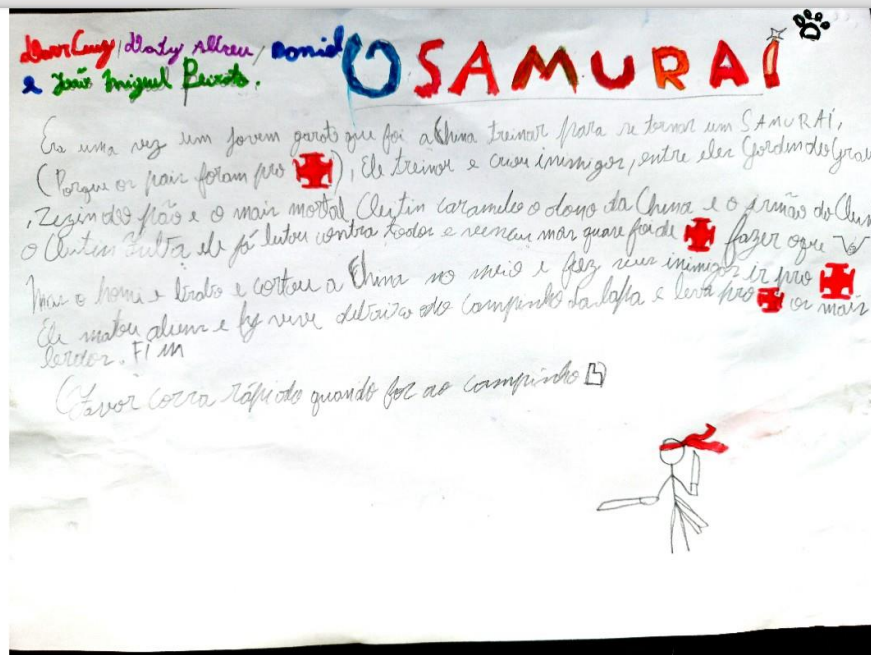 Davi Luiz, Daty Abreu, Daniel
e João Miguel Peixoto.
O SAMURAÍ
Era uma vez um jovem garoto que foi a China treinar para se tornar um SAMURAÍ,
(Porque os pais foram pro), Ele treinor e criou inimigos, entre eles Gordin do Grau
, Zezin do pão e o mais mortal, Cleitin caramelo o dono da China e o irmão do
o Cleitin ele já lutou contra todos e venceu mas quase foi de fazer oque
Mas o homi e brabo e cortou a China no meio e fez seus inimigos ir pro
Ele matou aliens e hj vive debaixo do campinho da lapa e leva pro os mais
lerdos. FIM
(Favor corra rápido quando for ao campinho